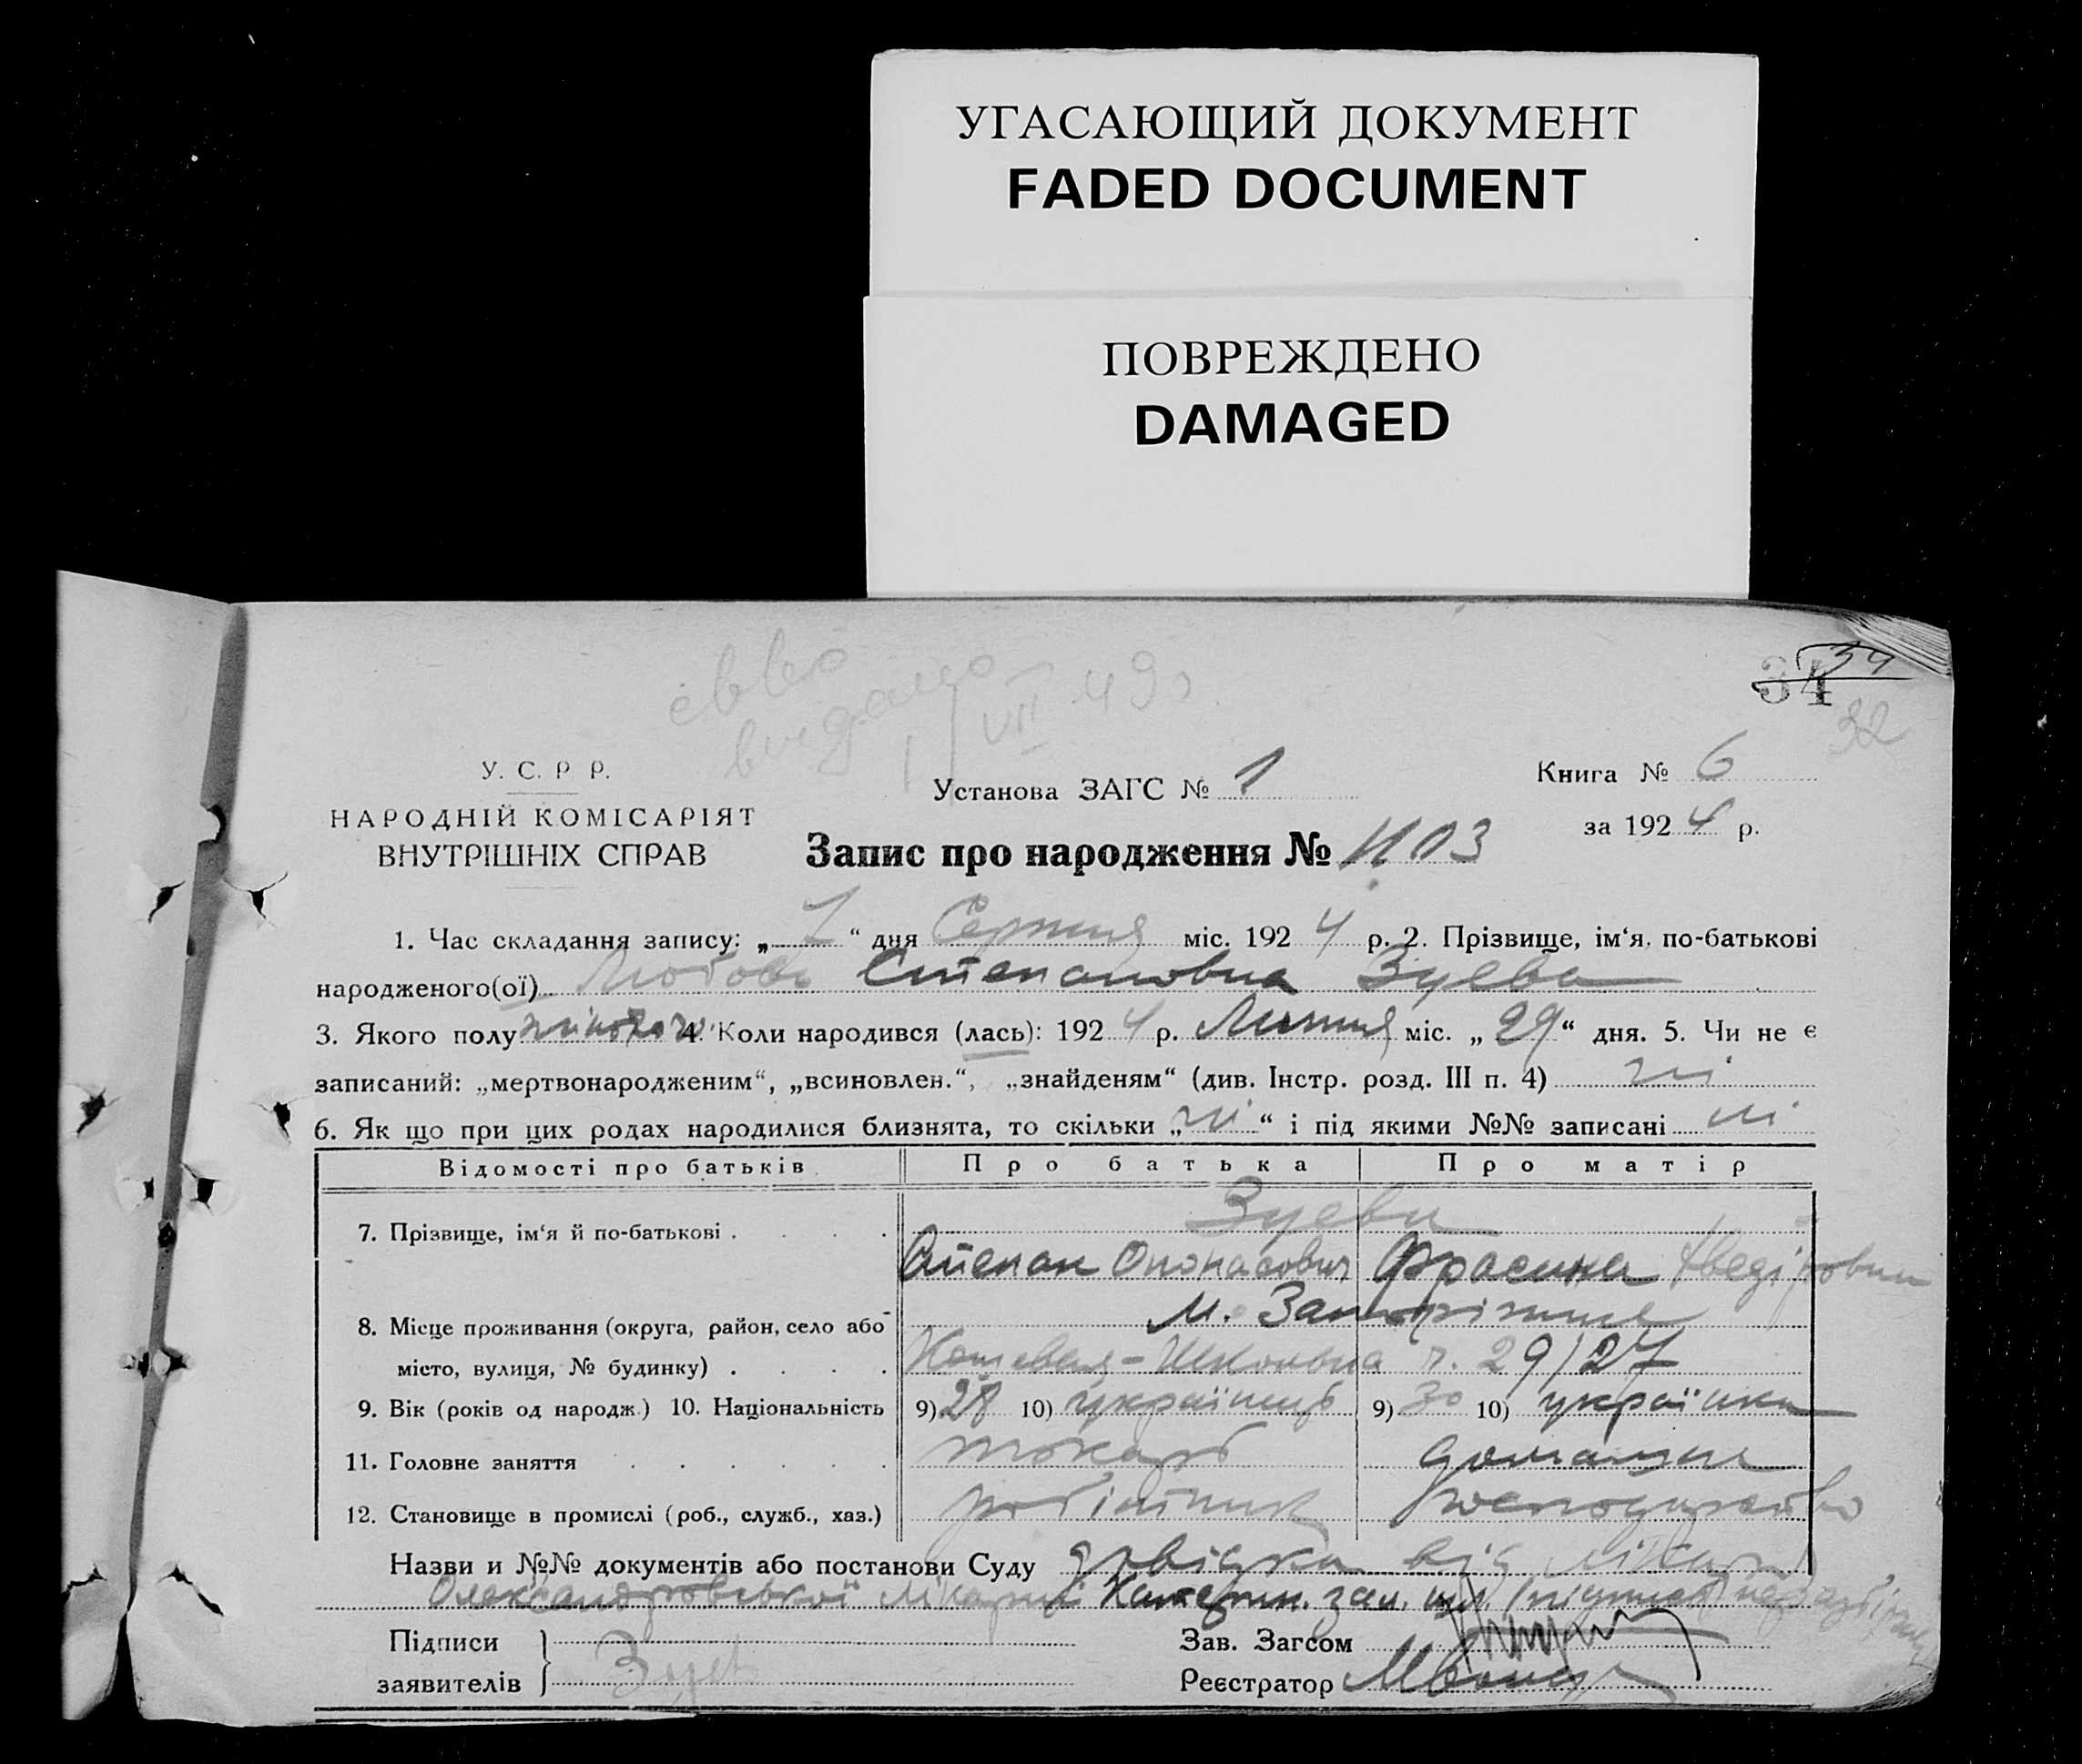 УГАСАЮЩИЙ ДОКУМЕНТ
FADED DOCUMENT
ПОВРЕЖДЕНО
DAMAGED
34
34
32
видано
1/VII 49 г
У. С. Р Р.
НАРОДНІЙ КОМІСАРІЯТ
ВНУТРІШНІХ СПРАВ
Установа ЗАГС № 1
Книга № 6
за 1924 р.
Запис про народження № 1103
1. Час складання запису: „ 7 “ дня Серпня міс. 1924 р. 2. Прізвище, ім‘я, по-батькові
народженого(ої) Любовь Степановна Зуева
3. Якого полу жіночого 4. Коли народився (лась): 1924 р. Липня міс. „ 29 “ дня. 5. Чи не є
записаний: „мертвонародженим“, „всиновлен.“, „знайденям“ (див. Інстр. розд. III п. 4) ні
6. Як що при цих родах народилися близнята, то скільки „ ні “ і під якими №№ записані ні
Відомості про батьків Про батька Про матір
7. Прізвище, ім‘я й по-батькові Зуеви
Степан Опонасович Фросина
8. Місце проживання (округа, район, село або м. Запоріжжя
місто, вулиця, № будинку) 29/27
9. Вік (років од народж.) 10. Національність 9) 28 10) українець 9) 30 10) українка
11. Головне заняття токарь домашнє
12. Становище в промислі (роб., служб., хаз.) робітник господарство
Назви и №№ документів або постанови Суду довідка від лікаря
Олександровської лікарні Катерин. зал.
Підписи
заявителів Зуев
Зав. Загсом
Реєстратор